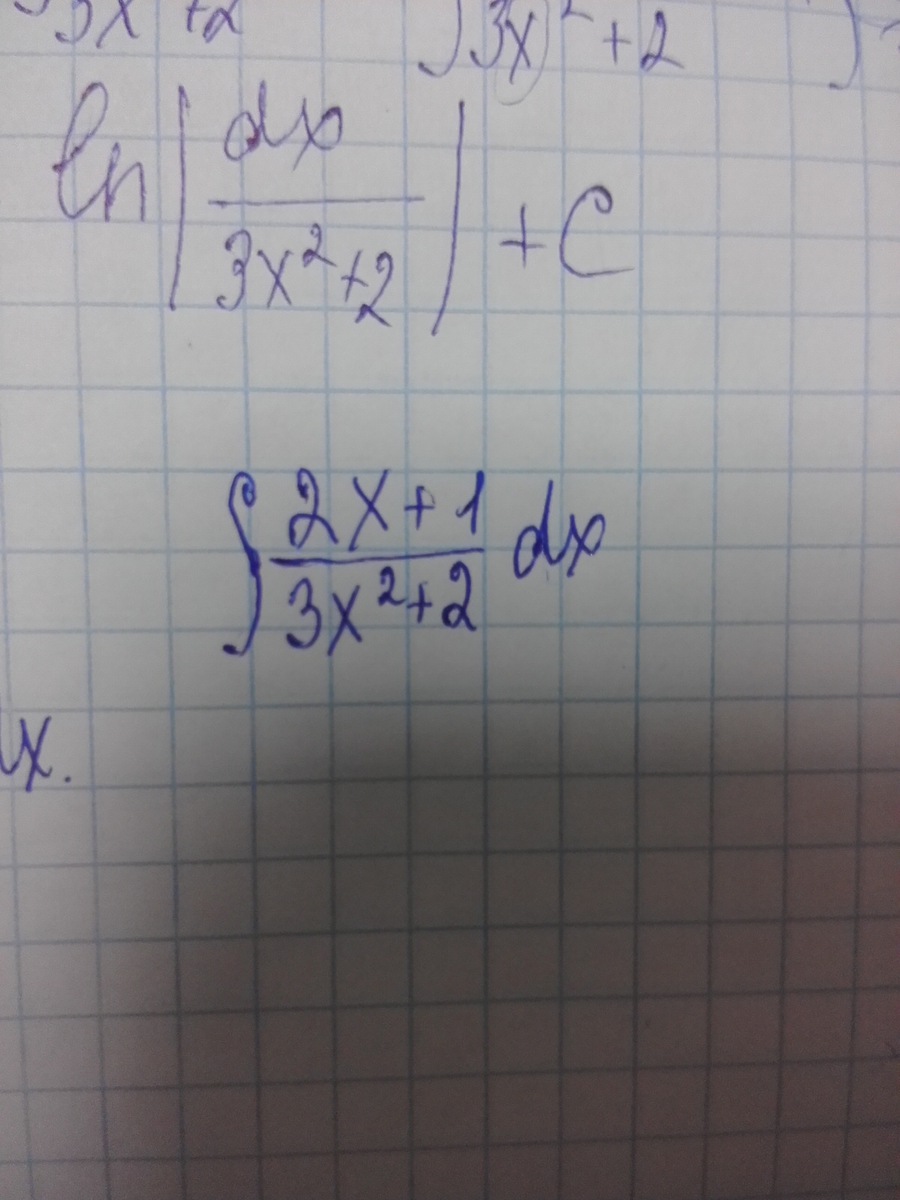 3x² +2 ∫ 3x² +2
ln | dx / 3x²+2 | + C
∫ 2x+1 / 3x²+2 dx
x.